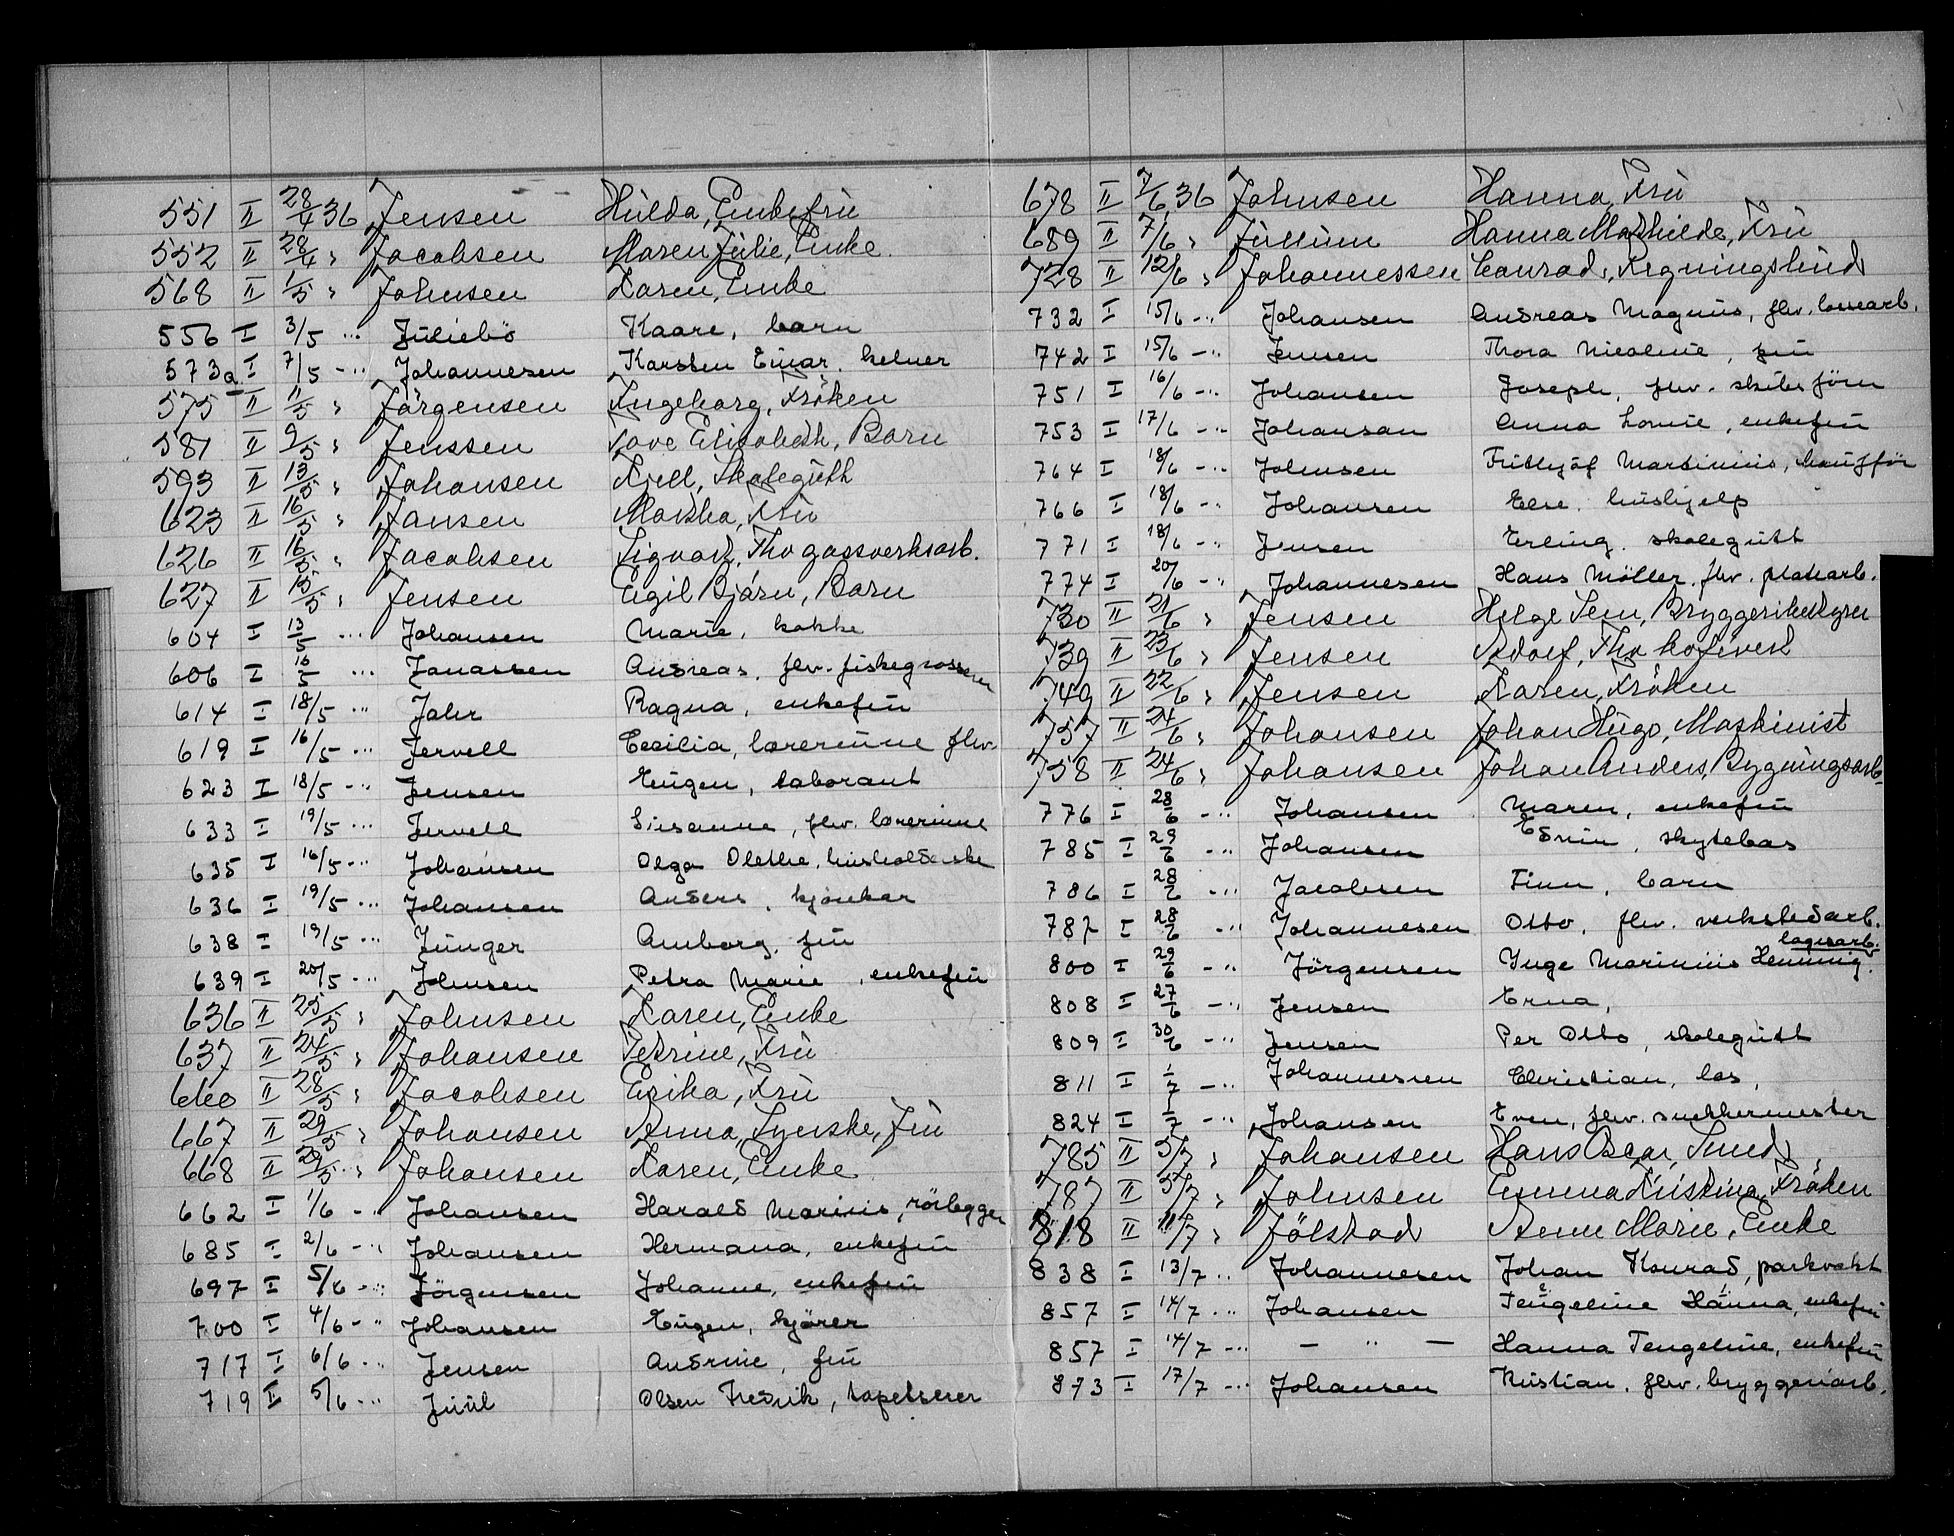 551 II 28/4 36 Jensen Hilda, Enkefru
552 II 28/4 " Jacobsen Maren Julie, Enke.
568 II 1/5 " Johnsen Karen, Enke
556 I 3/5 -"- Juliebö Kaare, barn
573a I 7/5 -"- Johannesen Karsten Einar, kelner
575 II 11/5 " Jørgensen Ingeborg, Frøken
581 II 9/5 " Jenssen Tove Elisabeth, Barn
593 II 13/5 " Johansen Kjell, Skolegutt
623 II 16/5 " Jansen Martha, Fru
626 II 16/5 " Jacobsen Sigvart, Fhv gassverksarb.
627 II 15/5 " Jensen Egil Bjørn, Barn
604 I 13/5 -"- Johansen Marie, kokke
606 I 16/5 -"- Jonassen Andreas, fhv. fiskegrosserer
614 I 18/5 -"- Jahr Ragna, enkefru
619 I 16/5 -"- Jervell Cecilia, lærerinne fhv.
623 I 18/5 -"- Jensen Eugen, laborant
633 I 19/5 -"- Jervell Susanne, fhv. lærerinne
635 I 16/5 -"- Johansen Olga Olethe, husholderske
636 I 19/5 -"- Johansen Anders, kjønkar
638 I 19/5 -"- Junger Amborg, fru
639 I 20/5 -"- Johnsen Petra Marie, enkefru
636 II 25/5 " Johnsen Karen, Enke
637 II 24/5 " Johansen Petrine, Fru
660 II 28/5 " Jacobsen Erika, Fru
667 II 29/5 " Johansen Anna, Synske, Fru
668 II 29/5 " Johansen Karen, Enke
662 I 1/6 -"- Johansen Harald Marius, rörlegger
685 I 2/6 -"- Johansen Hermana, enkefru
697 I 5/6 -"- Jörgensen Johanne, enkefru
700 I 4/6 -"- Johansen Eugen, kjører
717 I 6/6 -"- Jensen Andrine, fru
719 I 5/6 -"- Juul Olsen Fredrik, tapetserer
678 II 7/6 36 Johnsen Hanna, Fru
689 II 7/6 " Jullum Hanna Mathilde, Fru
728 II 12/6 " Johannessen Conrad, Regningsbud
732 I 15/6 -"- Johansen Andreas Magnus, fhv. lossearb.
742 I 15/6 -"- Jensen Thora Nicoline, fru
751 I 16/6 -"- Johansen Joseph, fhv. skibsförer
753 I 17/6 -"- Johansan Anna Lovise, enkefru
764 I 18/6 -"- Johnsen Fridtjöf Martinius, chauffør
766 I 18/6 -"- Johansen Else, hushjelp
771 I 18/6 -"- Jensen Erling, skolegutt
774 I 20/6 -"- Johannesen Hans Möller, fhv. platearb.
730 II 21/6 " Jensen Helge Sem, Bryggeribestyrer
739 II 23/6 " Jensen Adolf, Fhv kafévert
749 II 22/6 " Jensen Karen, Frøken
757 II 24/6 " Johansen Johan Hugo, Maskinist
758 II 24/6 " Johansen Johan Anders, Bygningsarb.
776 I 28/6 -"- Johansen Maren, enkefru
785 I 29/6 -"- Johansen Edvin, skytebas
786 I 28/6 -"- Jacobsen Finn, barn
787 I 28/6 -"- Johannesen Otto, fhv. verkstedarb.
lagerarb.
800 I 29/6 -"- Jörgensen Inge Marinius Henning.
808 I 27/6 -"- Jensen Erna,
809 I 30/6 -"- Jensen Per Otto, skolegutt
811 I 1/7 -"- Johannessen Christian, los,
824 I 1/7 -"- Johansen Even, fhv. snekkermester
785 II 5/7 " Johansen Hans Oscar, Smed
787 II 5/7 " Johnsen Emma Kristina, Frøken
818 II 11/7 " Jölstad Anne Marie, Enke
838 I 13/7 -"- Johannesen Johan Konrad, parkvakt
857 I 14/7 -"- Johansen Tengeline Hanna, enkefru
857 I 14/7 -"- — " — Hanna Tengeline, enkefru
873 I 17/7 -"- Johansen Kristian, fhv. bryggeriarb.